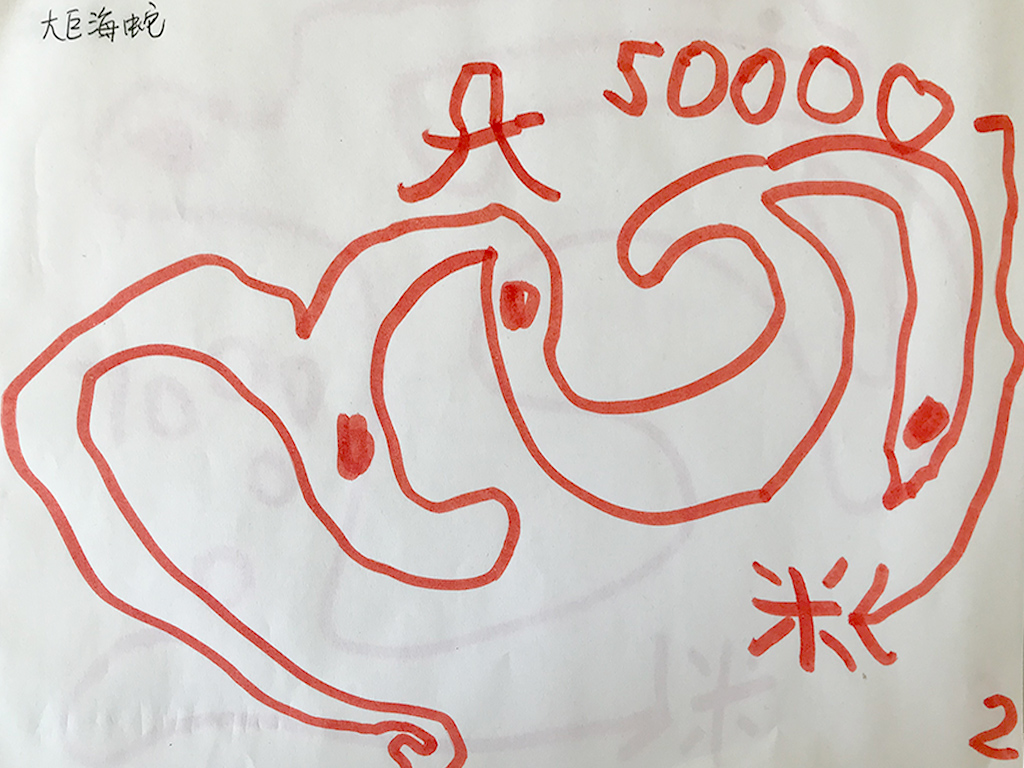 大巨海蛇
50000
米
2